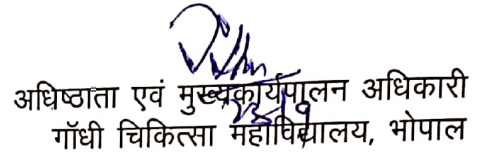 अधिष्ठाता एवं मुख्यकार्यपालन अधिकारी
गॉधी चिकित्सा महाविद्यालय, भोपाल